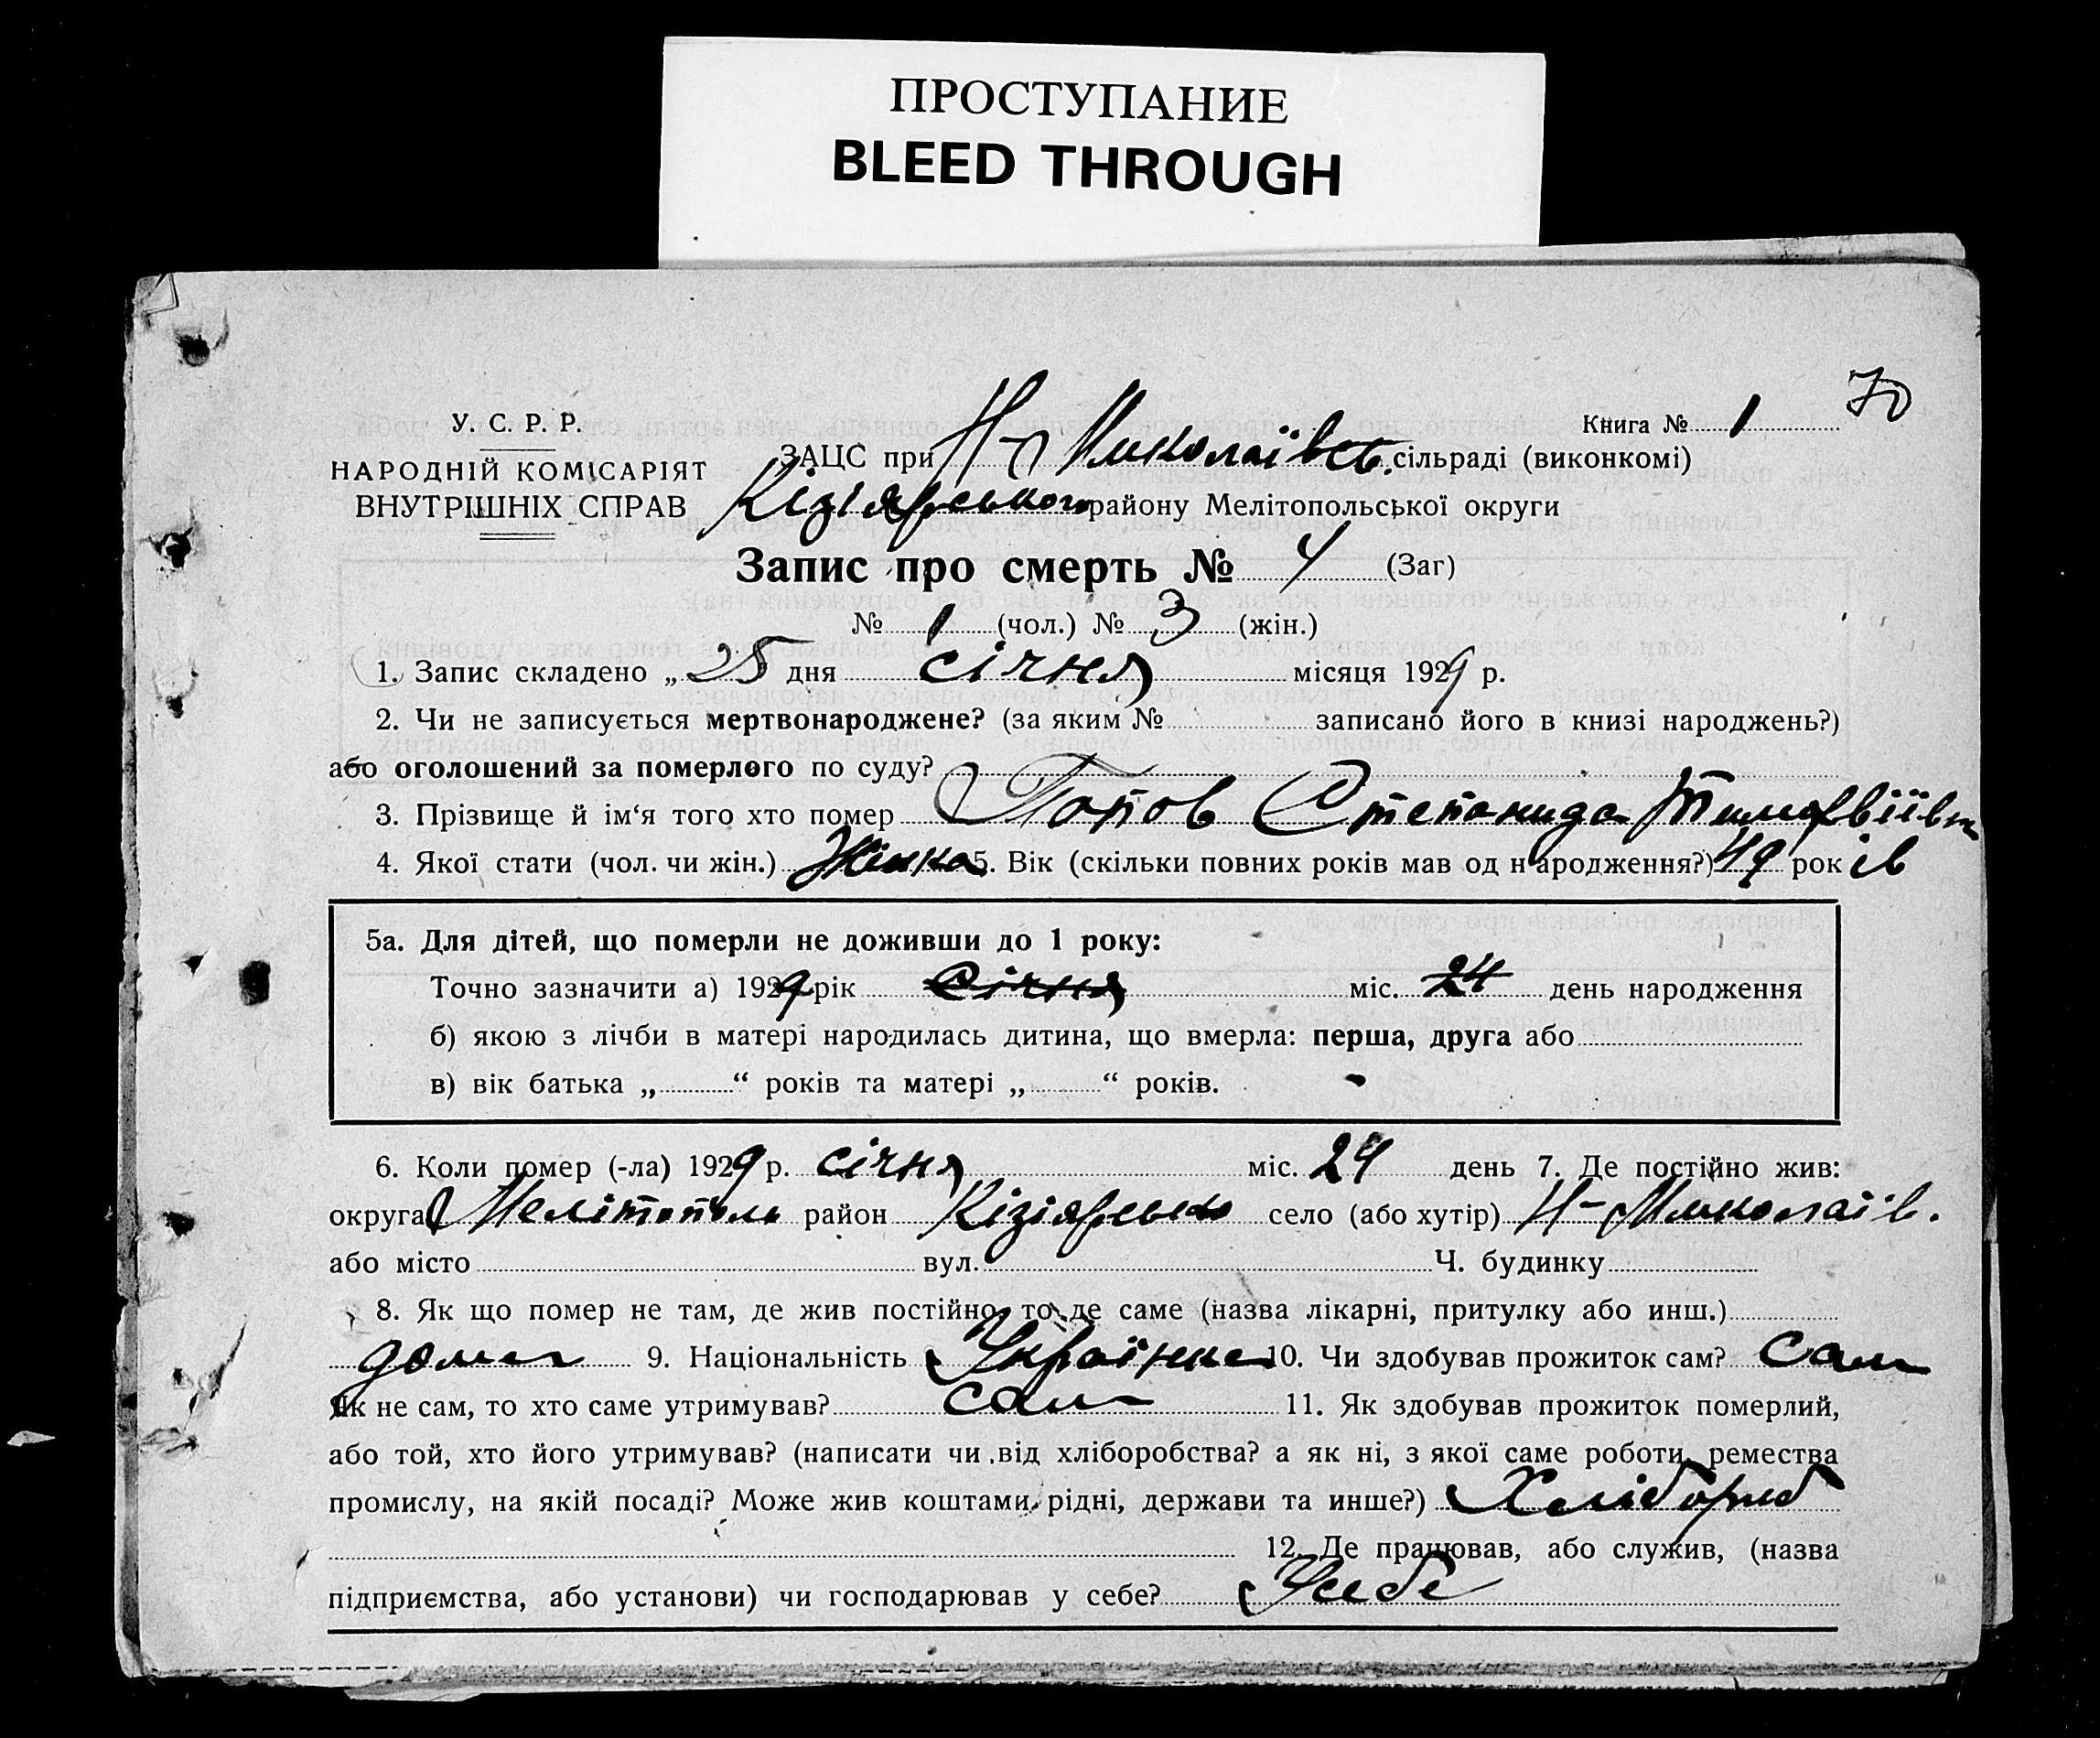 ПРОСТУПАНИЕ
BLEED THROUGH
70
У. С. Р. Р.
НАРОДНІЙ КОМІСАРІЯТ
ВНУТРІШНІХ СПРАВ
Книга № 1
ЗАЦС при Н-Миколаївськ. сільраді (виконкомі)
Кізіярського району Мелітопольської округи
Запис про смерть № 4 (Заг)
№ 1 (чол.) № 3 (жін.)
1. Запис складено „ 25 дня січня місяця 1929 р.
2. Чи не записується мертвонароджене? (за яким № записано його в книзі народжень?)
або оголошений за померлого по суду?
3. Прізвище й ім‘я того хто помер Попов Степанида Тимофвіївн
4. Якої стати (чол. чи жін.) Жінка 5. Вік (скільки повних років мав од народження?) 49 років
5а. Для дітей, що померли не доживши до 1 року:
Точно зазначити а) 1929 рік Січня міс. 24 день народження
б) якою з лічби в матері народилась дитина, що вмерла: перша, друга або
в) вік батька „ “ років та матері „ “ років.
6. Коли помер (-ла) 1929 р. січня міс. 24 день 7. Де постійно жив:
округа Мелітополь район Кізіярсько село (або хутір) Н-Миколаїв.
або місто вул. Ч. будинку
8. Як що помер не там, де жив постійно, то де саме (назва лікарні, притулку або инш.)
дома 9. Національність Українка 10. Чи здобував прожиток сам? Сам
Як не сам, то хто саме утримував? сам 11. Як здобував прожиток померлий,
або той, хто його утримував? (написати чи від хліборобства? а як ні, з якої саме роботи, ремества
промислу, на якій посаді? Може жив коштами рідні, держави та инше?) Хлібороб
12. Де працював, або служив, (назва
підприємства, або установи) чи господарював у себе? У себе